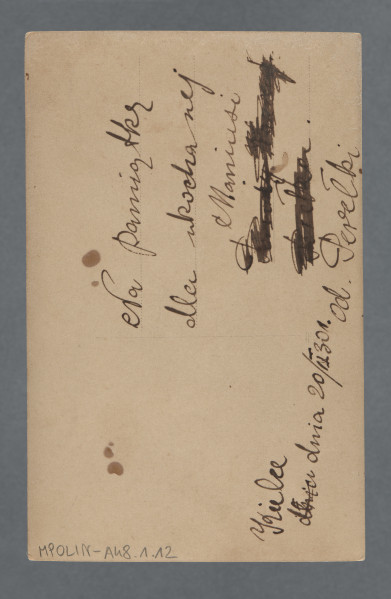 Na pamiątkę
dla ukochanej
Maniusi
od. Perełki
Kielce
dnia 20/IX 30 r.
MPOLIN-A48.1.12